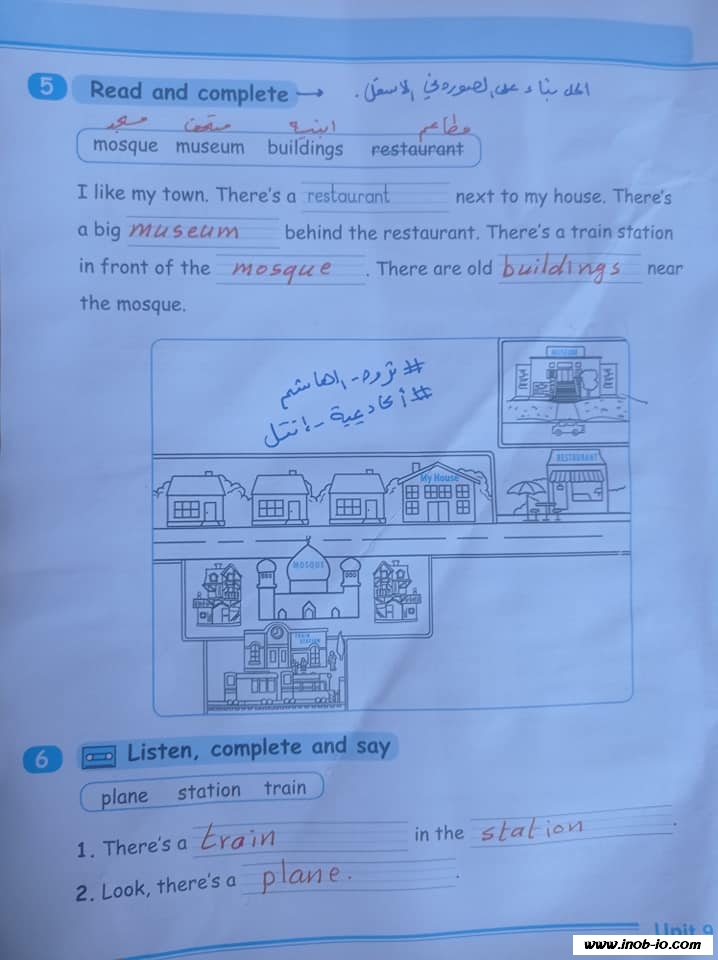 5 Read and complete → الحل بناء على الصورة في الاسفل.
مسجد متحف ابنية مطاعم
mosque museum buildings restaurant
I like my town. There's a restaurant next to my house. There's
a big museum behind the restaurant. There's a train station
in front of the mosque. There are old buildings near
the mosque.
MUSEUM
#
#أكاديمية
RESTAURANT
My House
MOSQUE
TRAIN
STATION
6 Listen, complete and say
plane station train
1. There's a train in the station.
2. Look, there's a plane. .
Unit 9
www.inob-io.com